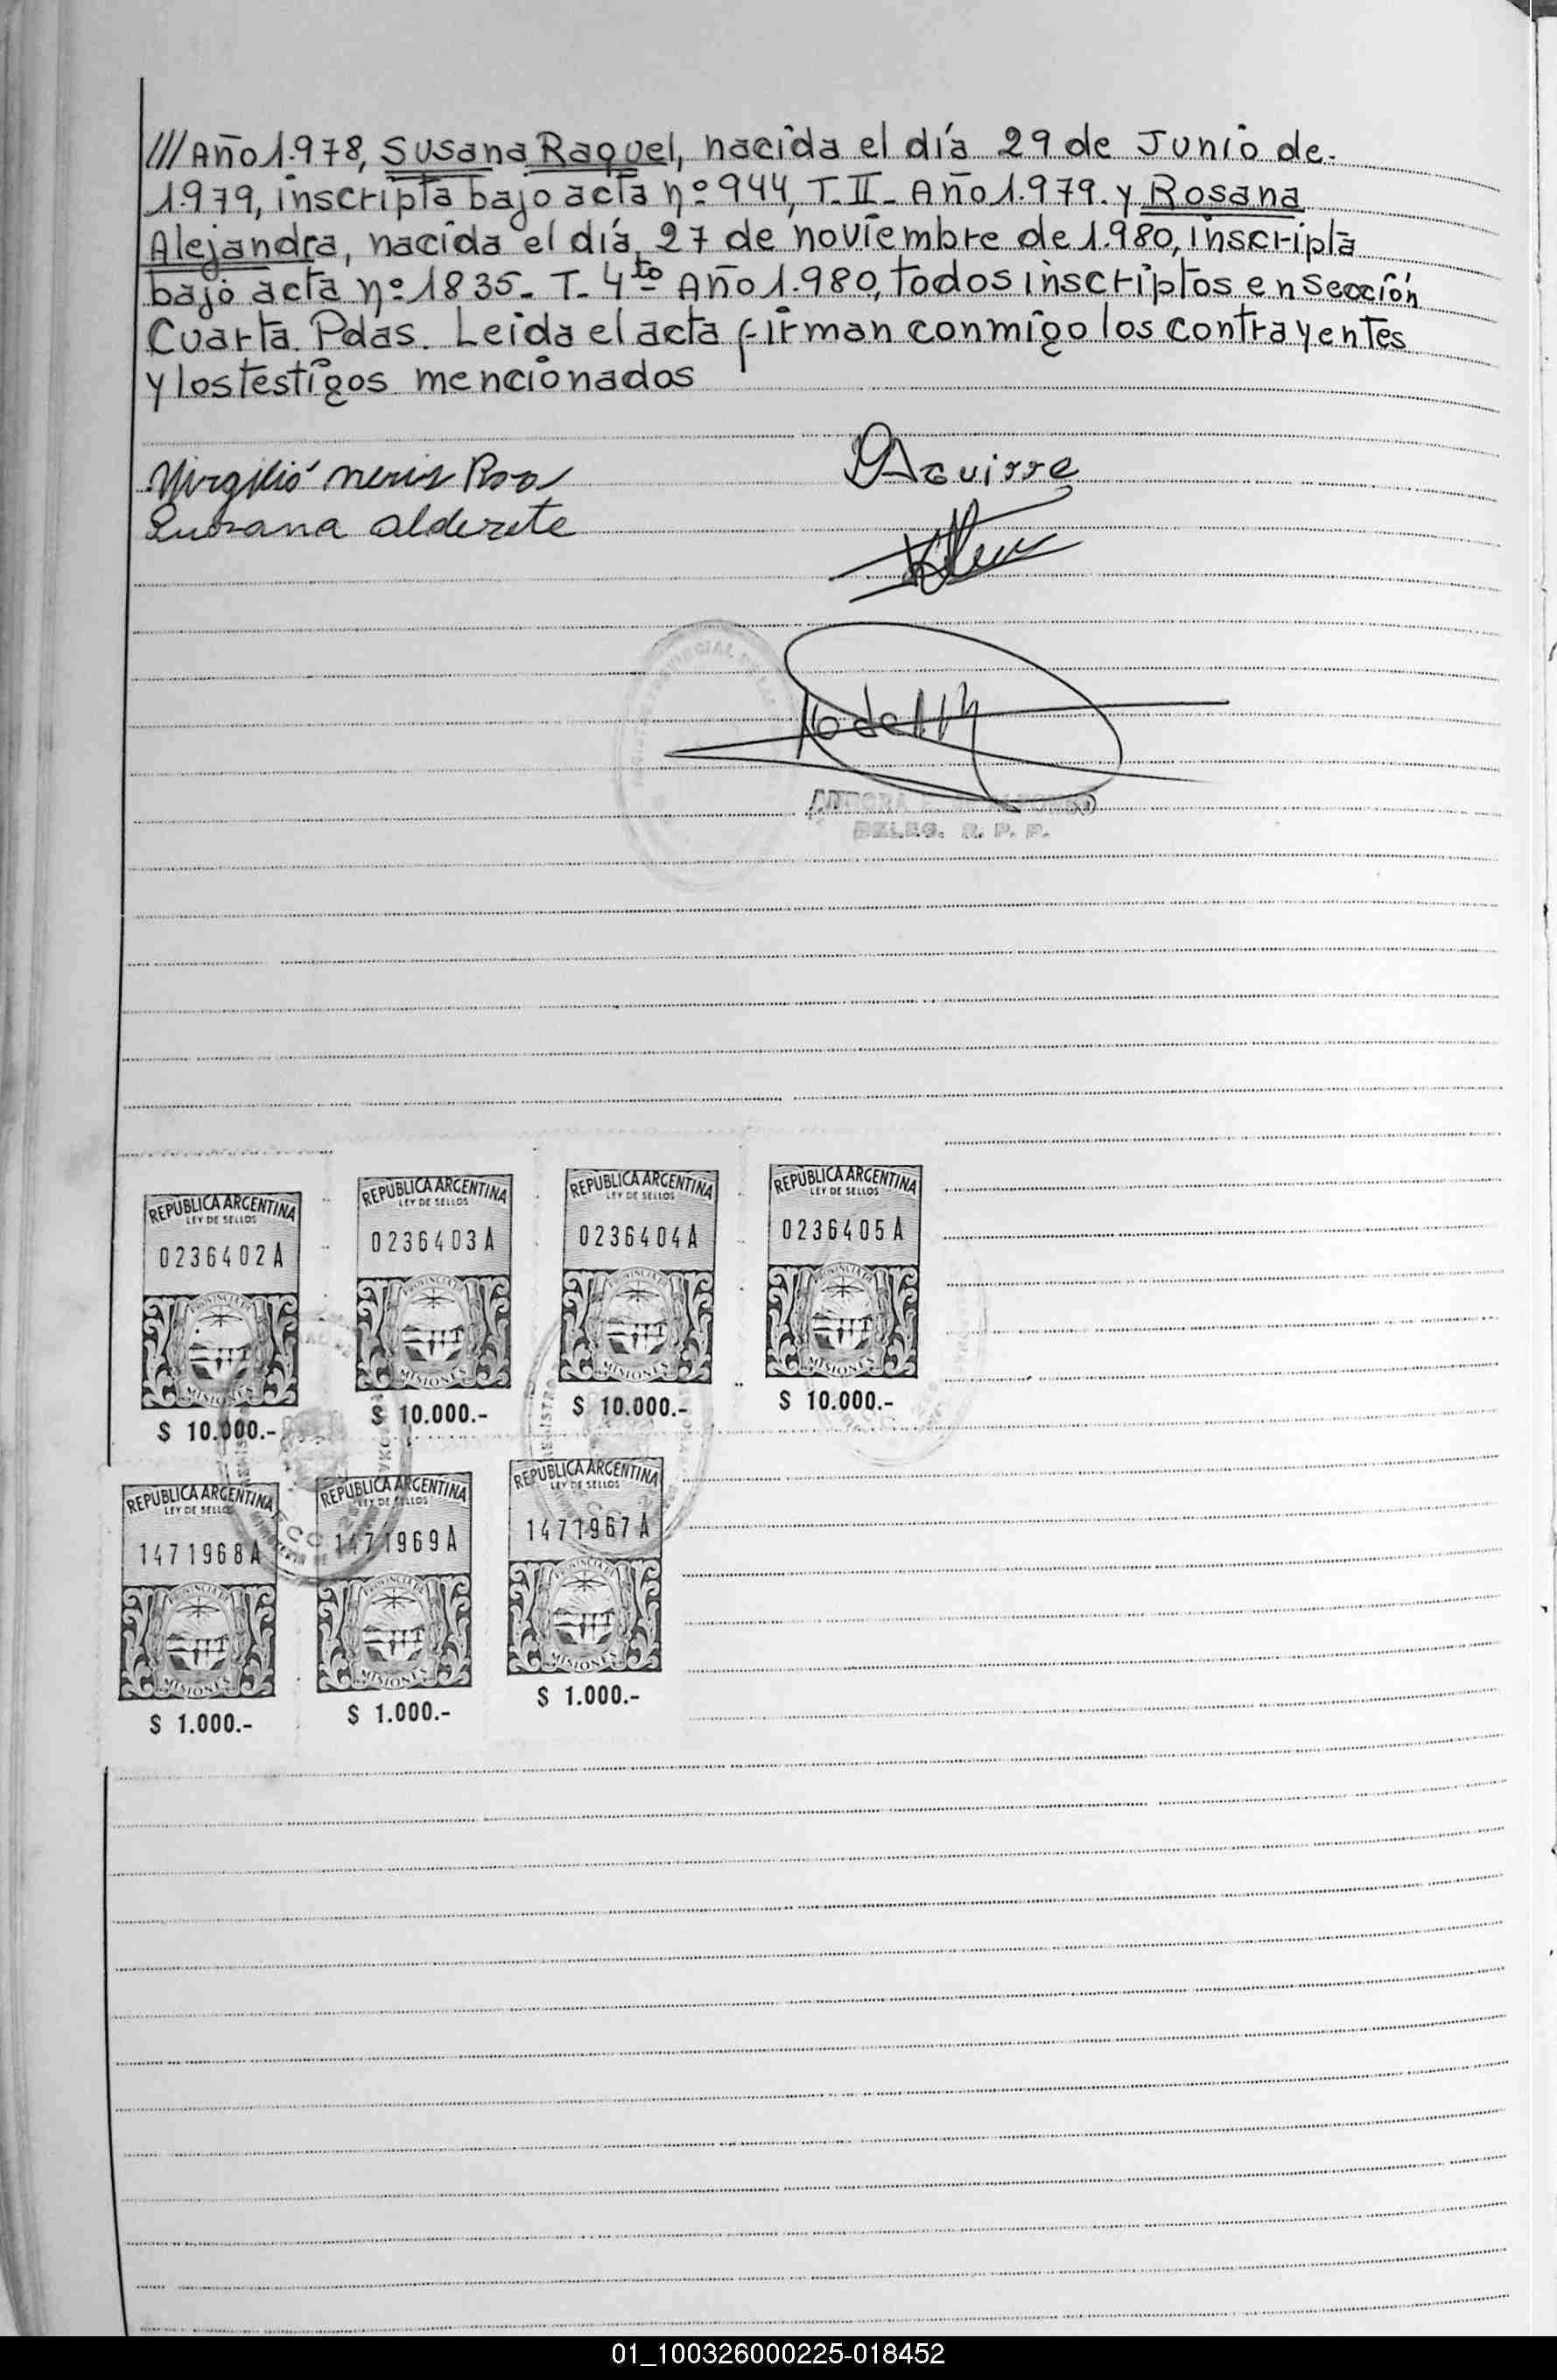 /// Año 1.978, Susana Raquel, nacida el día 29 de Junio de.
1.979, inscripta bajo acta nº 944, T. II_ Año 1.979. y Rosana
Alejandra, nacida el día 27 de noviembre de 1.980, inscripta
bajo acta nº 1835_ T_ 4to Año 1.980, todos inscriptos en Sección
Cuarta. Pdas. Leida el acta firman conmigo los contrayentes
y los testigos mencionados
Virgilio Neris
Aguirre
Susana alderete
DELEG. R. P. P.
REPUBLICA ARGENTINA
LEY DE SELLOS
0236402A
PROVINCIA DE
MISIONES
$ 10.000.-
REPUBLICA ARGENTINA
LEY DE SELLOS
0236403A
PROVINCIA DE
MISIONES
$ 10.000.-
REPUBLICA ARGENTINA
LEY DE SELLOS
0236404A
PROVINCIA DE
MISIONES
$ 10.000.-
REPUBLICA ARGENTINA
LEY DE SELLOS
0236405A
PROVINCIA DE
MISIONES
$ 10.000.-
REPUBLICA ARGENTINA
LEY DE SELLOS
1471968A
PROVINCIA DE
MISIONES
$ 1.000.-
REPUBLICA ARGENTINA
LEY DE SELLOS
1471969A
PROVINCIA DE
MISIONES
$ 1.000.-
REPUBLICA ARGENTINA
LEY DE SELLOS
1471967A
PROVINCIA DE
MISIONES
$ 1.000.-
01_100326000225-018452